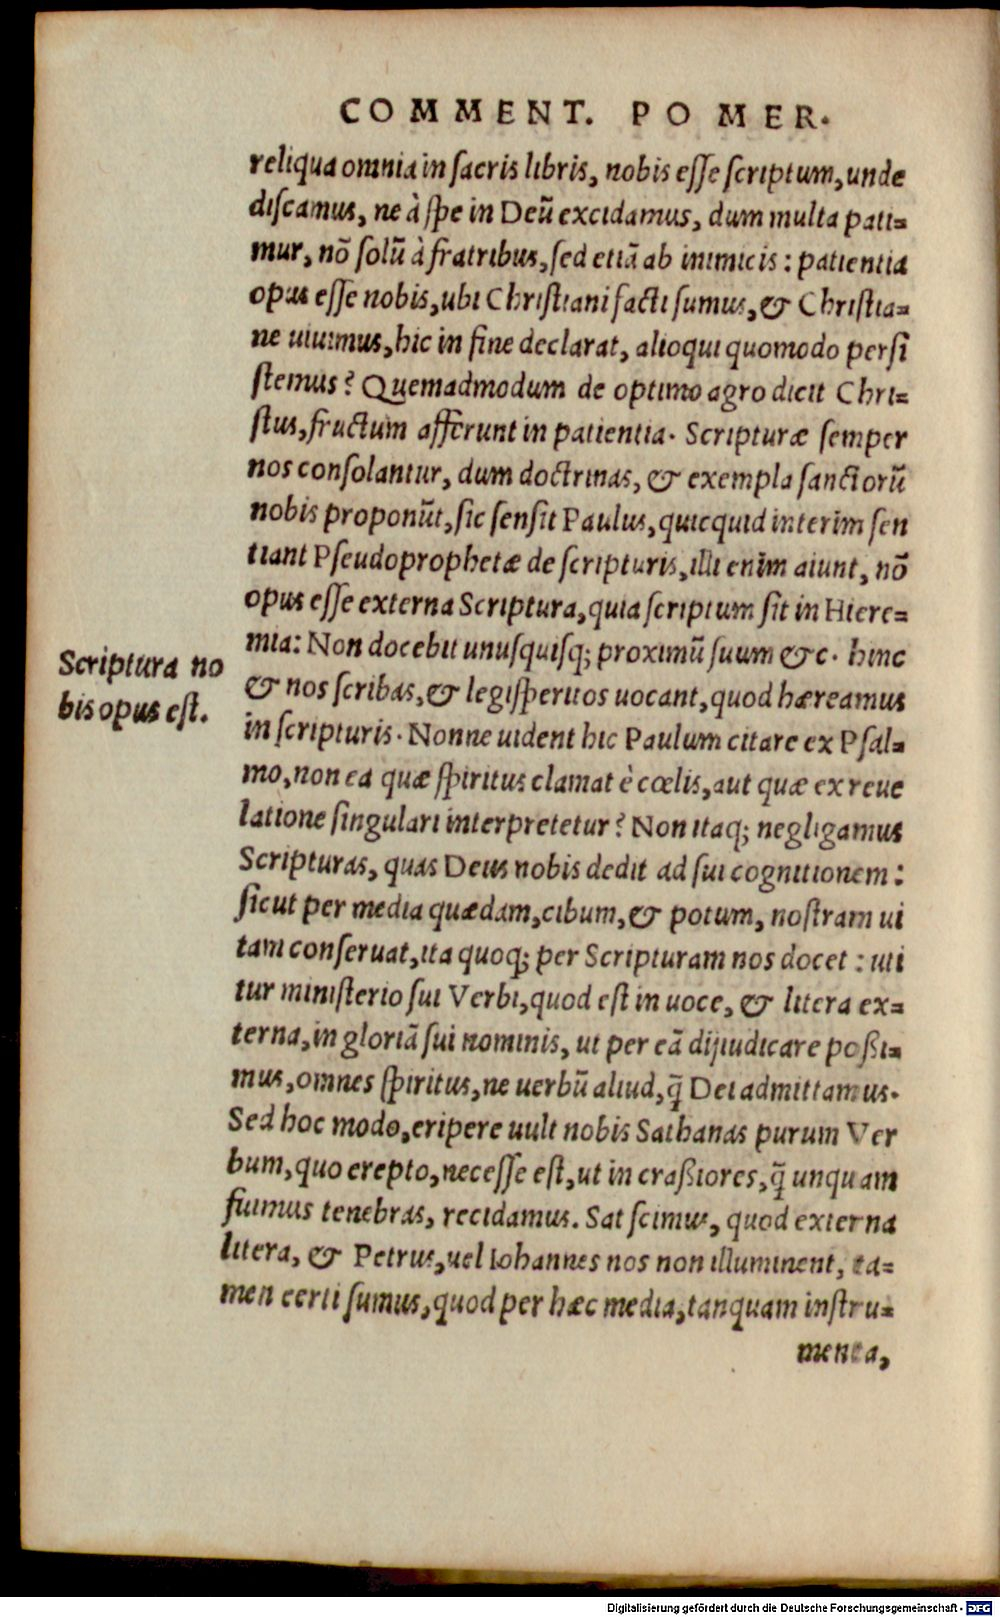 COMMENT. POMER.
reliqua omnia in ſacris libris, nobis eſſe ſcriptum, unde
diſcamus, ne à ſpe in Deũ excidamus, dum multa pati=
mur, nõ ſolũ à fratribus, ſed etiã ab inimicis: patientia
opus eſſe nobis, ubi Chriſtiani facti ſumus, & Chriſtia=
ne uiuimus, hic in fine declarat, alioqui quomodo perſi
ſtemus? Quemadmodum de optimo agro dicit Chri=
ſtus, fructum afferunt in patientia. Scripturæ ſemper
nos conſolantur, dum doctrinas, & exempla ſanctorũ
nobis proponũt, ſic ſenſit Paulus, quicquid interim ſen
tiant Pſeudoprophetæ de ſcripturis, illi enim aiunt, nõ
opus eſſe externa Scriptura, quia ſcriptum ſit in Hiere=
mia: Non docebit unuſquiſq; proximũ ſuum &c. hinc
& nos ſcribas, & legiſperitos uocant, quod hæreamus
in ſcripturis. Nonne uident hic Paulum citare ex Pſal=
mo, non ea quæ ſpiritus clamat è cœlis, aut quæ ex reue
latione ſingulari interpretetur? Non itaq; negligamus
Scripturas, quas Deus nobis dedit ad ſui cognitionem:
ſicut per media quædam, cibum, & potum, noſtram ui
tam conſeruat, ita quoq; per Scripturam nos docet: uti
tur miniſterio ſui Verbi, quod eſt in uoce, & litera ex=
terna, in gloriã ſui nominis, ut per eã dijudicare poßi=
mus, omnes ſpiritus, ne uerbũ aliud, q̃ Dei admittamus.
Sed hoc modo, eripere uult nobis Sathanas purum Ver
bum, quo erepto, neceſſe eſt, ut in craßiores, q̃ unquam
fuimus tenebras, recidamus. Sat ſcimus, quod externa
litera, & Petrus, uel Iohannes nos non illuminent, ta=
men certi ſumus, quod per hæc media, tanquam inſtru=
menta,
Scriptura no
bis opus eſt.
Digitalisierung gefördert durch die Deutsche Forschungsgemeinschaft - DFG